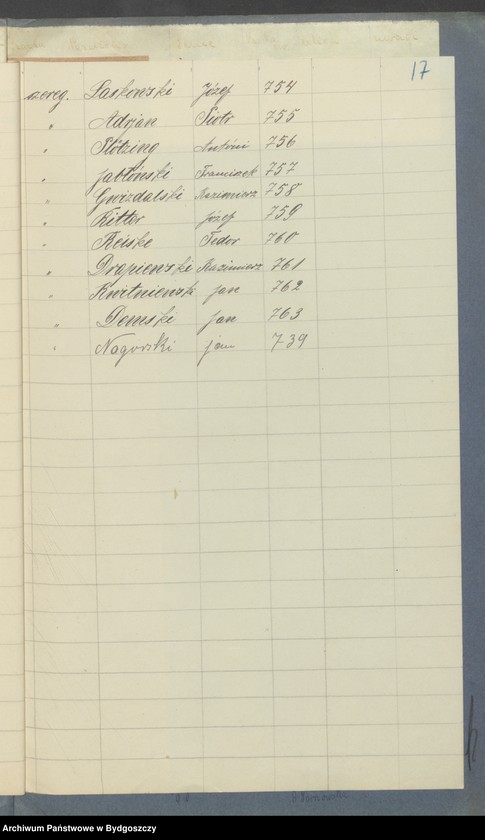 17
szereg. Laskowski Józef 754
" Adrjan Piotr 755
" Stötzing Antóni 756
" Jabłoński Franciszek 757
" Gwizdalski Kazimierz 758
" Ritter Józef 759
" Reiske Fedor 760
" Drapiewski Kazimierz 761
" Kwitniewski Jan 762
" Demski Jan 763
" Nagorski Jan 739
Archiwum Państwowe w Bydgoszczy